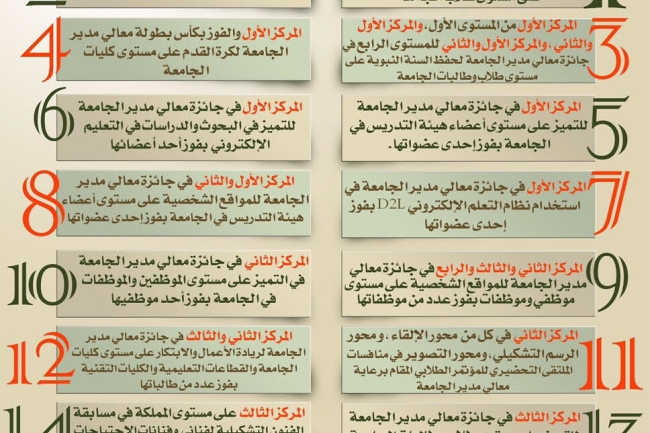 3
المركز الأول من المستوى الأول، والمركز الأول
والثاني، والمركز الأول والثاني للمستوى الرابع في
جائزة معالي مدير الجامعة لحفظ السنة النبوية على
مستوى طلاب وطالبات الجامعة
4
المركز الأول والفوز بكأس بطولة معالي مدير
الجامعة لكرة القدم على مستوى كليات
الجامعة
5
المركز الأول في جائزة معالي مدير الجامعة
للتميز على مستوى أعضاء هيئة التدريس في
الجامعة بفوز إحدى عضواتها.
6
المركز الأول في جائزة معالي مدير الجامعة
للتميز في البحوث والدراسات في التعليم
الإلكتروني بفوز أحد أعضائها
7
المركز الأول في جائزة معالي مدير الجامعة في
استخدام نظام التعلم الإلكتروني D2L بفوز
إحدى عضواتها
8
المركز الأول والثاني في جائزة معالي مدير
الجامعة للمواقع الشخصية على مستوى أعضاء
هيئة التدريس في الجامعة بفوز إحدى عضواتها
9
المركز الثاني والثالث والرابع في جائزة معالي
مدير الجامعة للمواقع الشخصية على مستوى
موظفي وموظفات بفوز عدد من موظفاتها
10
المركز الثاني في جائزة معالي مدير الجامعة
في التميز على مستوى الموظفين والموظفات
في الجامعة بفوز أحد موظفيها
11
المركز الثاني في كل من محور الإلقاء، ومحور
الرسم التشكيلي، ومحور التصوير في منافسات
الملتقى التحضيري للمؤتمر الطلابي المقام برعاية
معالي مدير الجامعة
12
المركز الثاني والثالث في جائزة معالي مدير
الجامعة لريادة الأعمال والابتكار على مستوى كليات
الجامعة والقطاعات التعليمية والكليات التقنية
بفوز عدد من طالباتها
13
المركز الثالث في جائزة معالي مدير الجامعة
14
المركز الثالث على مستوى المملكة في مسابقة
الفنون التشكيلية لفناني وفنانات الاحتياجات